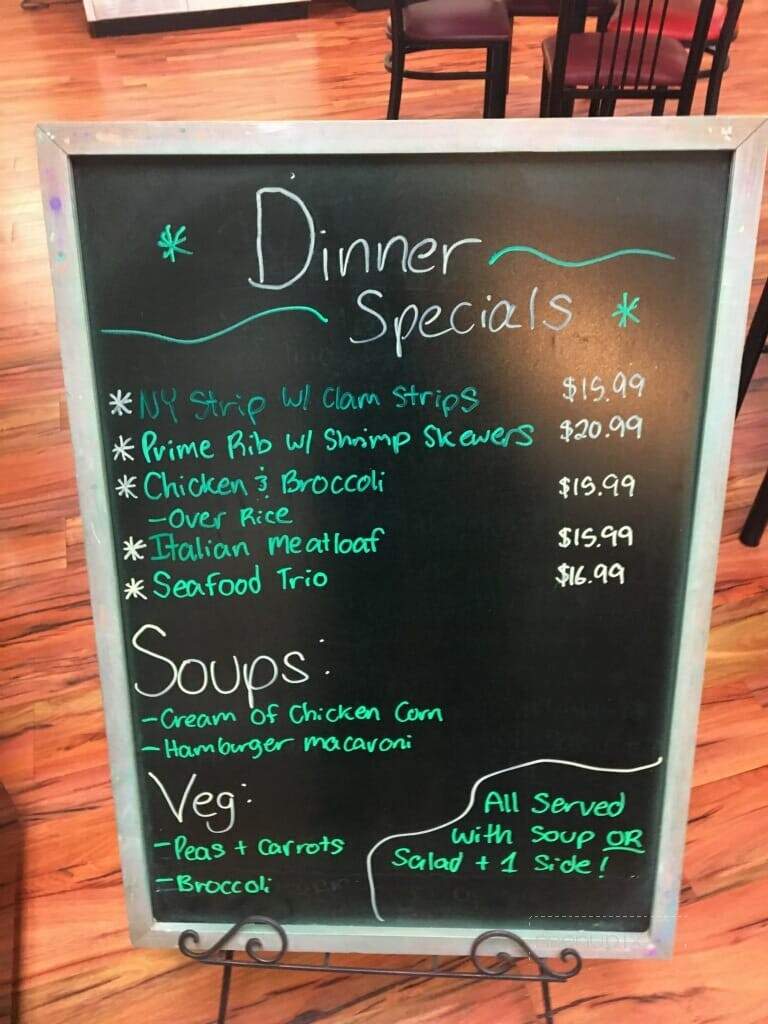 Dinner
Specials
* NY Strip w/ Clam Strips $15.99
* Prime Rib w/ Shrimp Skewers $20.99
* Chicken & Broccoli $15.99
-Over Rice
* Italian Meatloaf $15.99
* Seafood Trio $16.99
Soups:
-Cream of Chicken Corn
-Hamburger macaroni
Veg:
-Peas + Carrots
-Broccoli
All Served
with Soup OR
Salad + 1 Side!